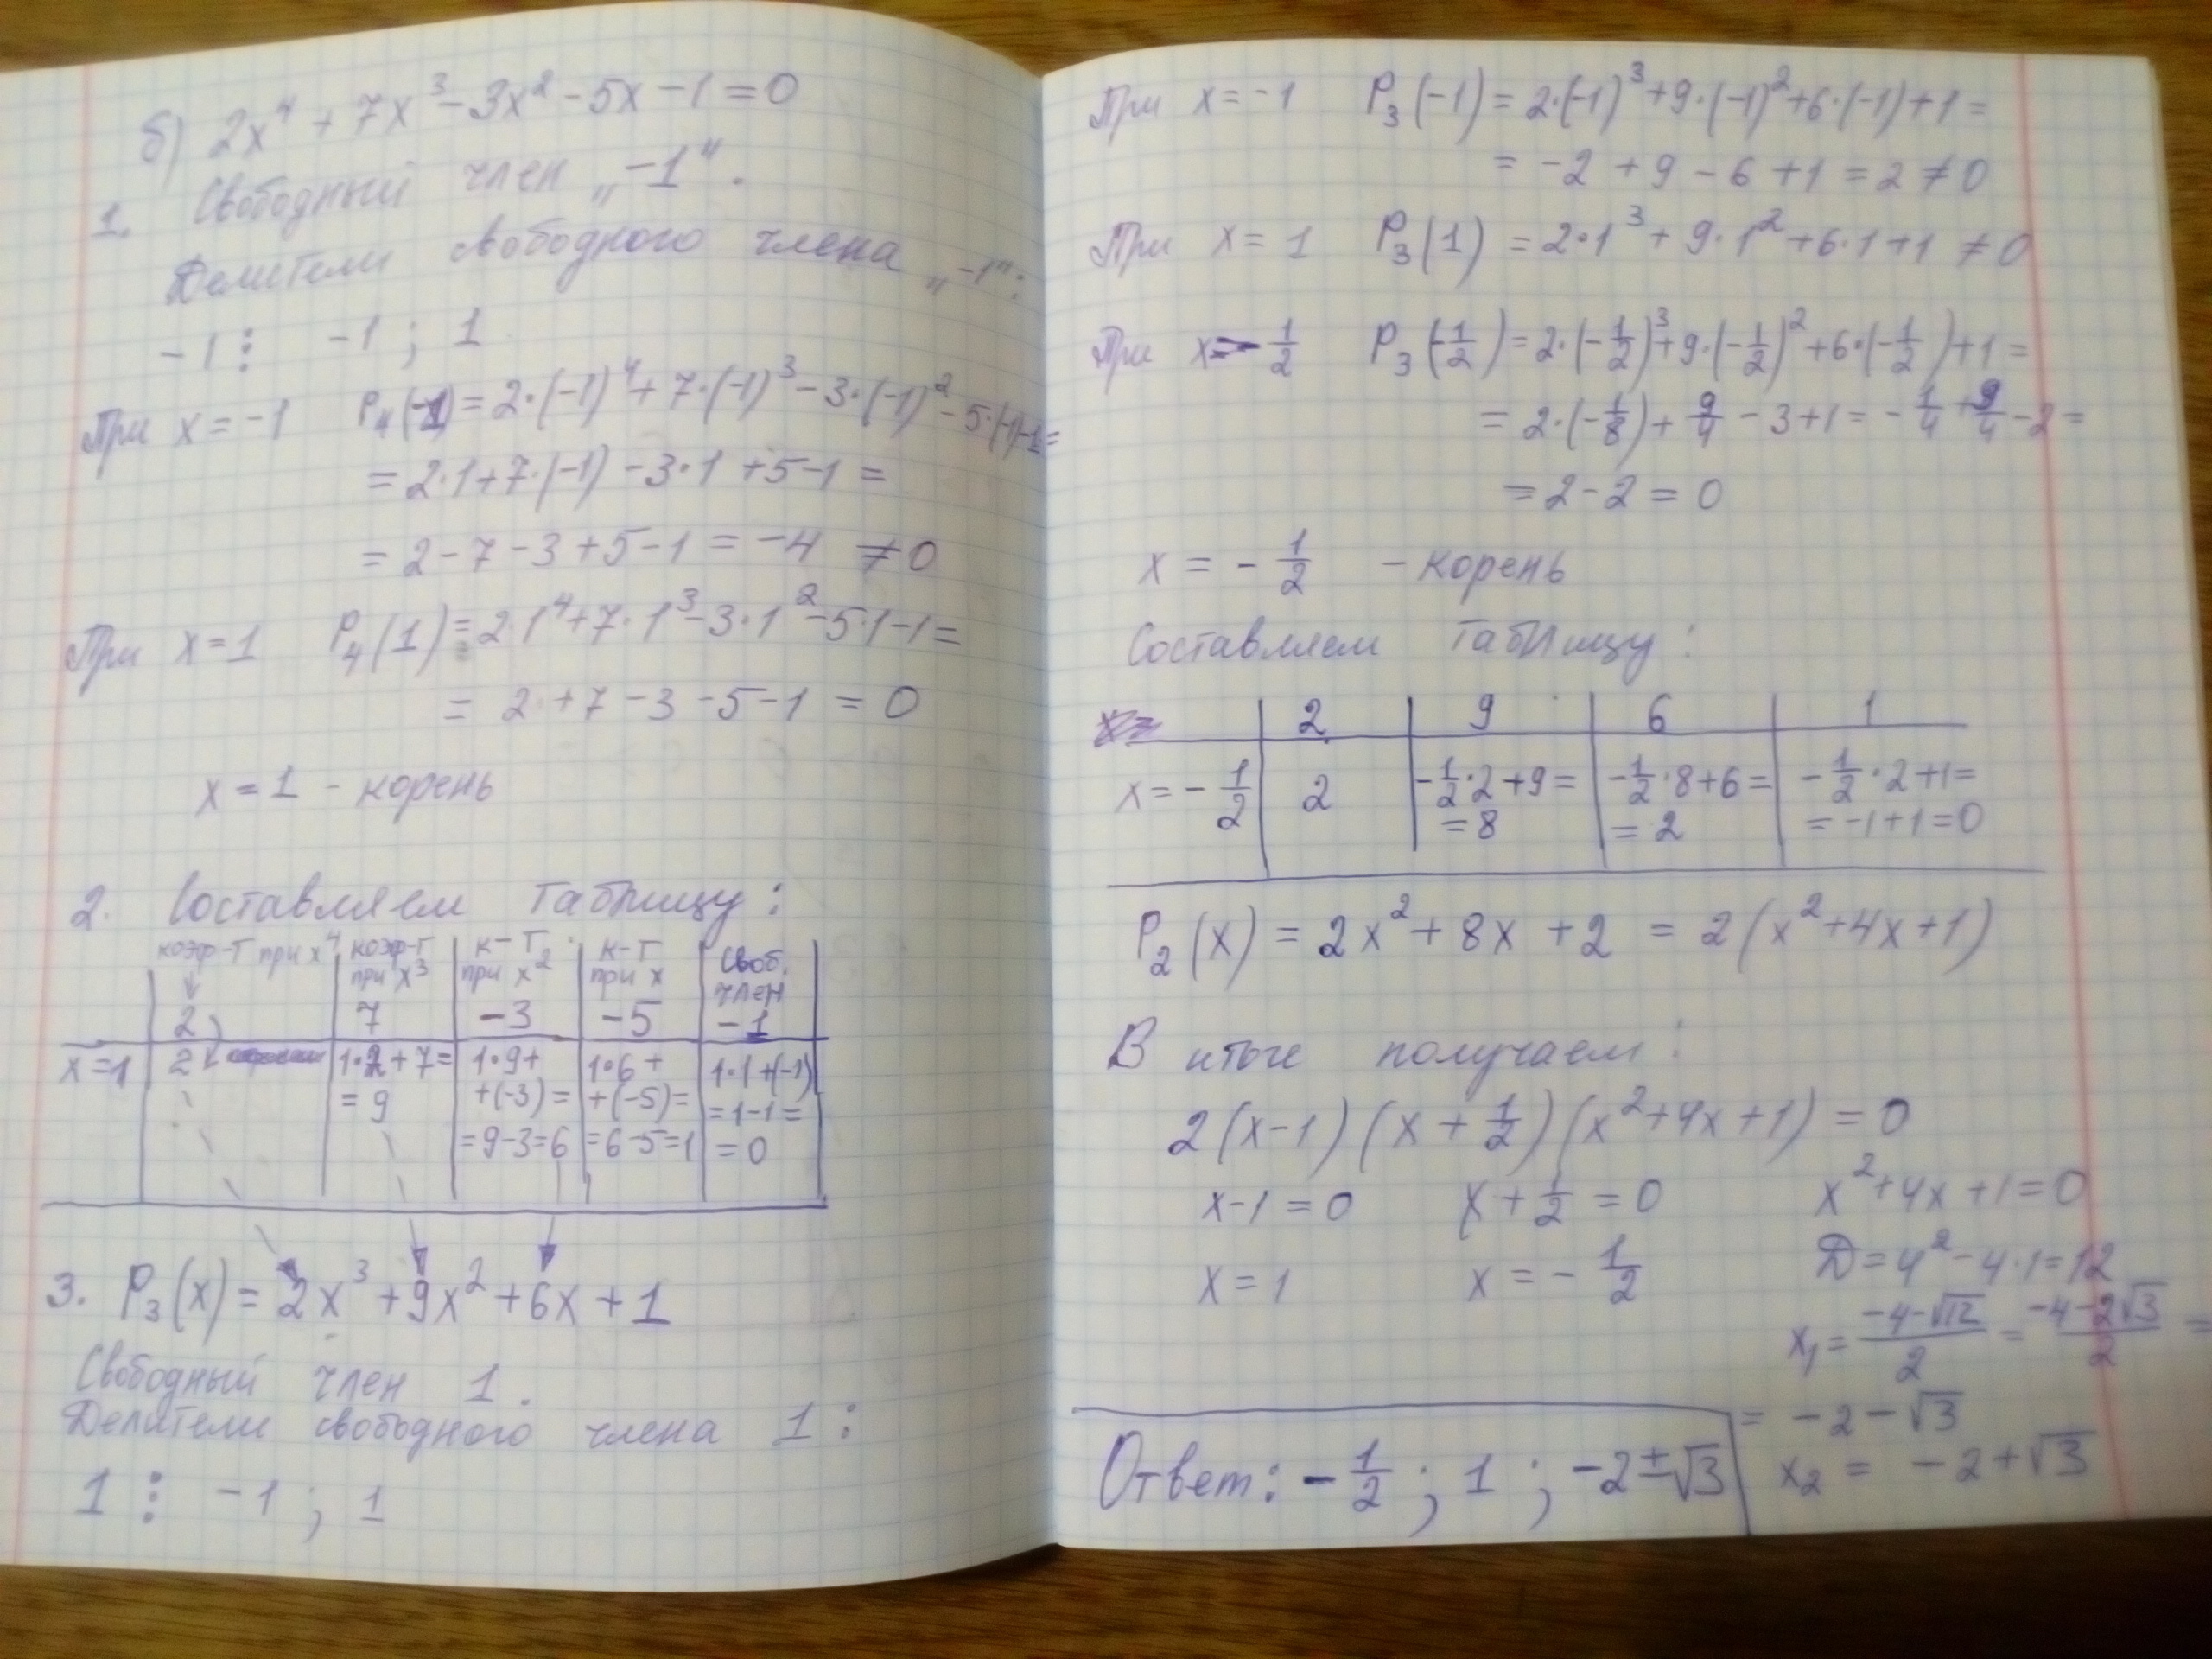 б) 2x⁴ + 7x³ - 3x² - 5x - 1 = 0
1. Свободный член „-1".
Делители свободного члена „-1":
-1 ⋮ -1 ; 1
При x = -1 P₄(-1) = 2·(-1)⁴ + 7·(-1)³ - 3·(-1)² - 5·(-1)-1 =
= 2·1+7·(-1) - 3·1 + 5 - 1 =
= 2 - 7 - 3 + 5 - 1 = -4 ≠ 0
При x = 1 P₄(1) = 2·1⁴ + 7·1³ - 3·1² - 5·1 - 1 =
= 2 + 7 - 3 - 5 - 1 = 0
x = 1 - корень
2. Составляем таблицу:
коэф-т при x⁴ | коэф-т при x³ | к-т при x² | к-т при x | своб. член
2 | 7 | -3 | -5 | -1
x = 1 | 2 | 1·2 + 7 = = 9 | 1·9 + +(-3) = = 9-3=6 | 1·6 + +(-5) = = 6-5=1 | 1·1+(-1) = 1-1 = = 0
3. P₃(x) = 2x³ + 9x² + 6x + 1
Свободный член 1.
Делители свободного члена 1:
1 ⋮ -1 ; 1
При x = -1 P₃(-1) = 2·(-1)³ + 9·(-1)² + 6·(-1) + 1 =
= -2 + 9 - 6 + 1 = 2 ≠ 0
При x = 1 P₃(1) = 2·1³ + 9·1² + 6·1 + 1 ≠ 0
При x = -1/2 P₃(-1/2) = 2·(-1/2)³ + 9·(-1/2)² + 6·(-1/2) + 1 =
= 2·(-1/8) + 9/4 - 3 + 1 = -1/4 + 9/4 - 2 =
= 2 - 2 = 0
x = -1/2 - корень
Составляем таблицу:
2 | 9 | 6 | 1
x = -1/2 | 2 | -1/2·2 + 9 = = 8 | -1/2·8 + 6 = = 2 | -1/2·2 + 1 = = -1 + 1 = 0
P₂(x) = 2x² + 8x + 2 = 2(x² + 4x + 1)
В итоге получаем:
2(x-1)(x + 1/2)(x² + 4x + 1) = 0
x - 1 = 0 x + 1/2 = 0 x² + 4x + 1 = 0
x = 1 x = -1/2 D = 4² - 4·1 = 12
x₁ = (-4-√12)/2 = (-4-2√3)/2 =
= -2 - √3
x₂ = -2 + √3
Ответ: -1/2 ; 1 ; -2 ± √3